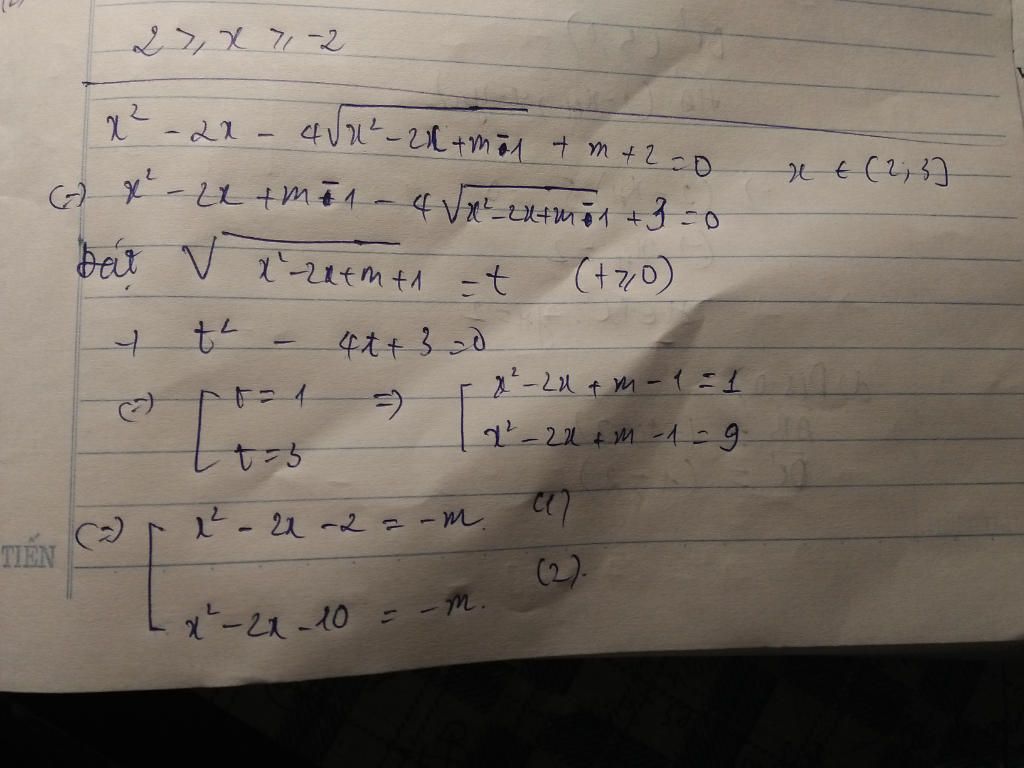 2 ≥ x ≥ -2
x² - 2x - 4√(x² - 2x + m - 1) + m + 2 = 0 x ∈ (2; 3]
(=) x² - 2x + m - 1 - 4√(x² - 2x + m - 1) + 3 = 0
Đặt √(x² - 2x + m + 1) = t (t ≥ 0)
→ t² - 4t + 3 = 0
(=) [ t = 1 => [ x² - 2x + m - 1 = 1
t = 3 x² - 2x + m - 1 = 9
(=) [ x² - 2x - 2 = -m. (1)
TIẾN
x² - 2x - 10 = -m. (2).